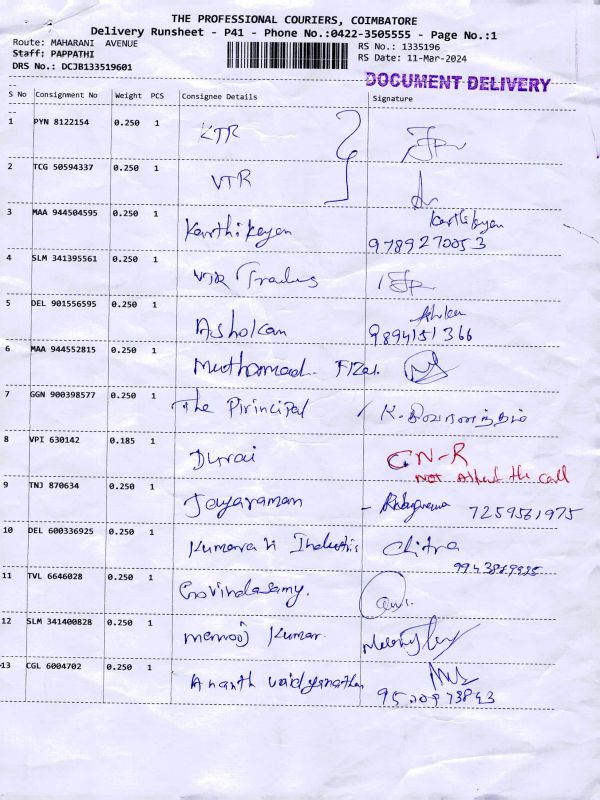 THE PROFESSIONAL COURIERS, COIMBATORE
Delivery Runsheet - P41 - Phone No.:0422-3505555 - Page No.:1
Route: MAHARANI AVENUE RS No.: 1335196
Staff: PAPPATHI RS Date: 11-Mar-2024
DRS No.: DCJB133519601
DOCUMENT DELIVERY
S No Consignment No Weight PCS Consignee Details Signature
1 PYN 8122154 0.250 1 KTR
2 TCG 50594337 0.250 1 VTR
3 MAA 944504595 0.250 1 Karthikeyan Karthikeyan
9789270053
4 SLM 341395561 0.250 1 VTR Traders
5 DEL 901556595 0.250 1 Asholkan
9894151366
6 MAA 944552815 0.250 1 Muthamad
7 GGN 900398577 0.250 1 The Pirincipal
8 VPI 630142 0.185 1 Durai CN-R
NOT the call
9 TNJ 870634 0.250 1 Jayaraman 7259561975
10 DEL 600336925 0.250 1 Kumaran Chitra
11 TVL 6646028 0.250 1 Govindasamy.
12 SLM 341400828 0.250 1 Kumar
13 CGL 6004702 0.250 1 Ananth Vaidyanathan